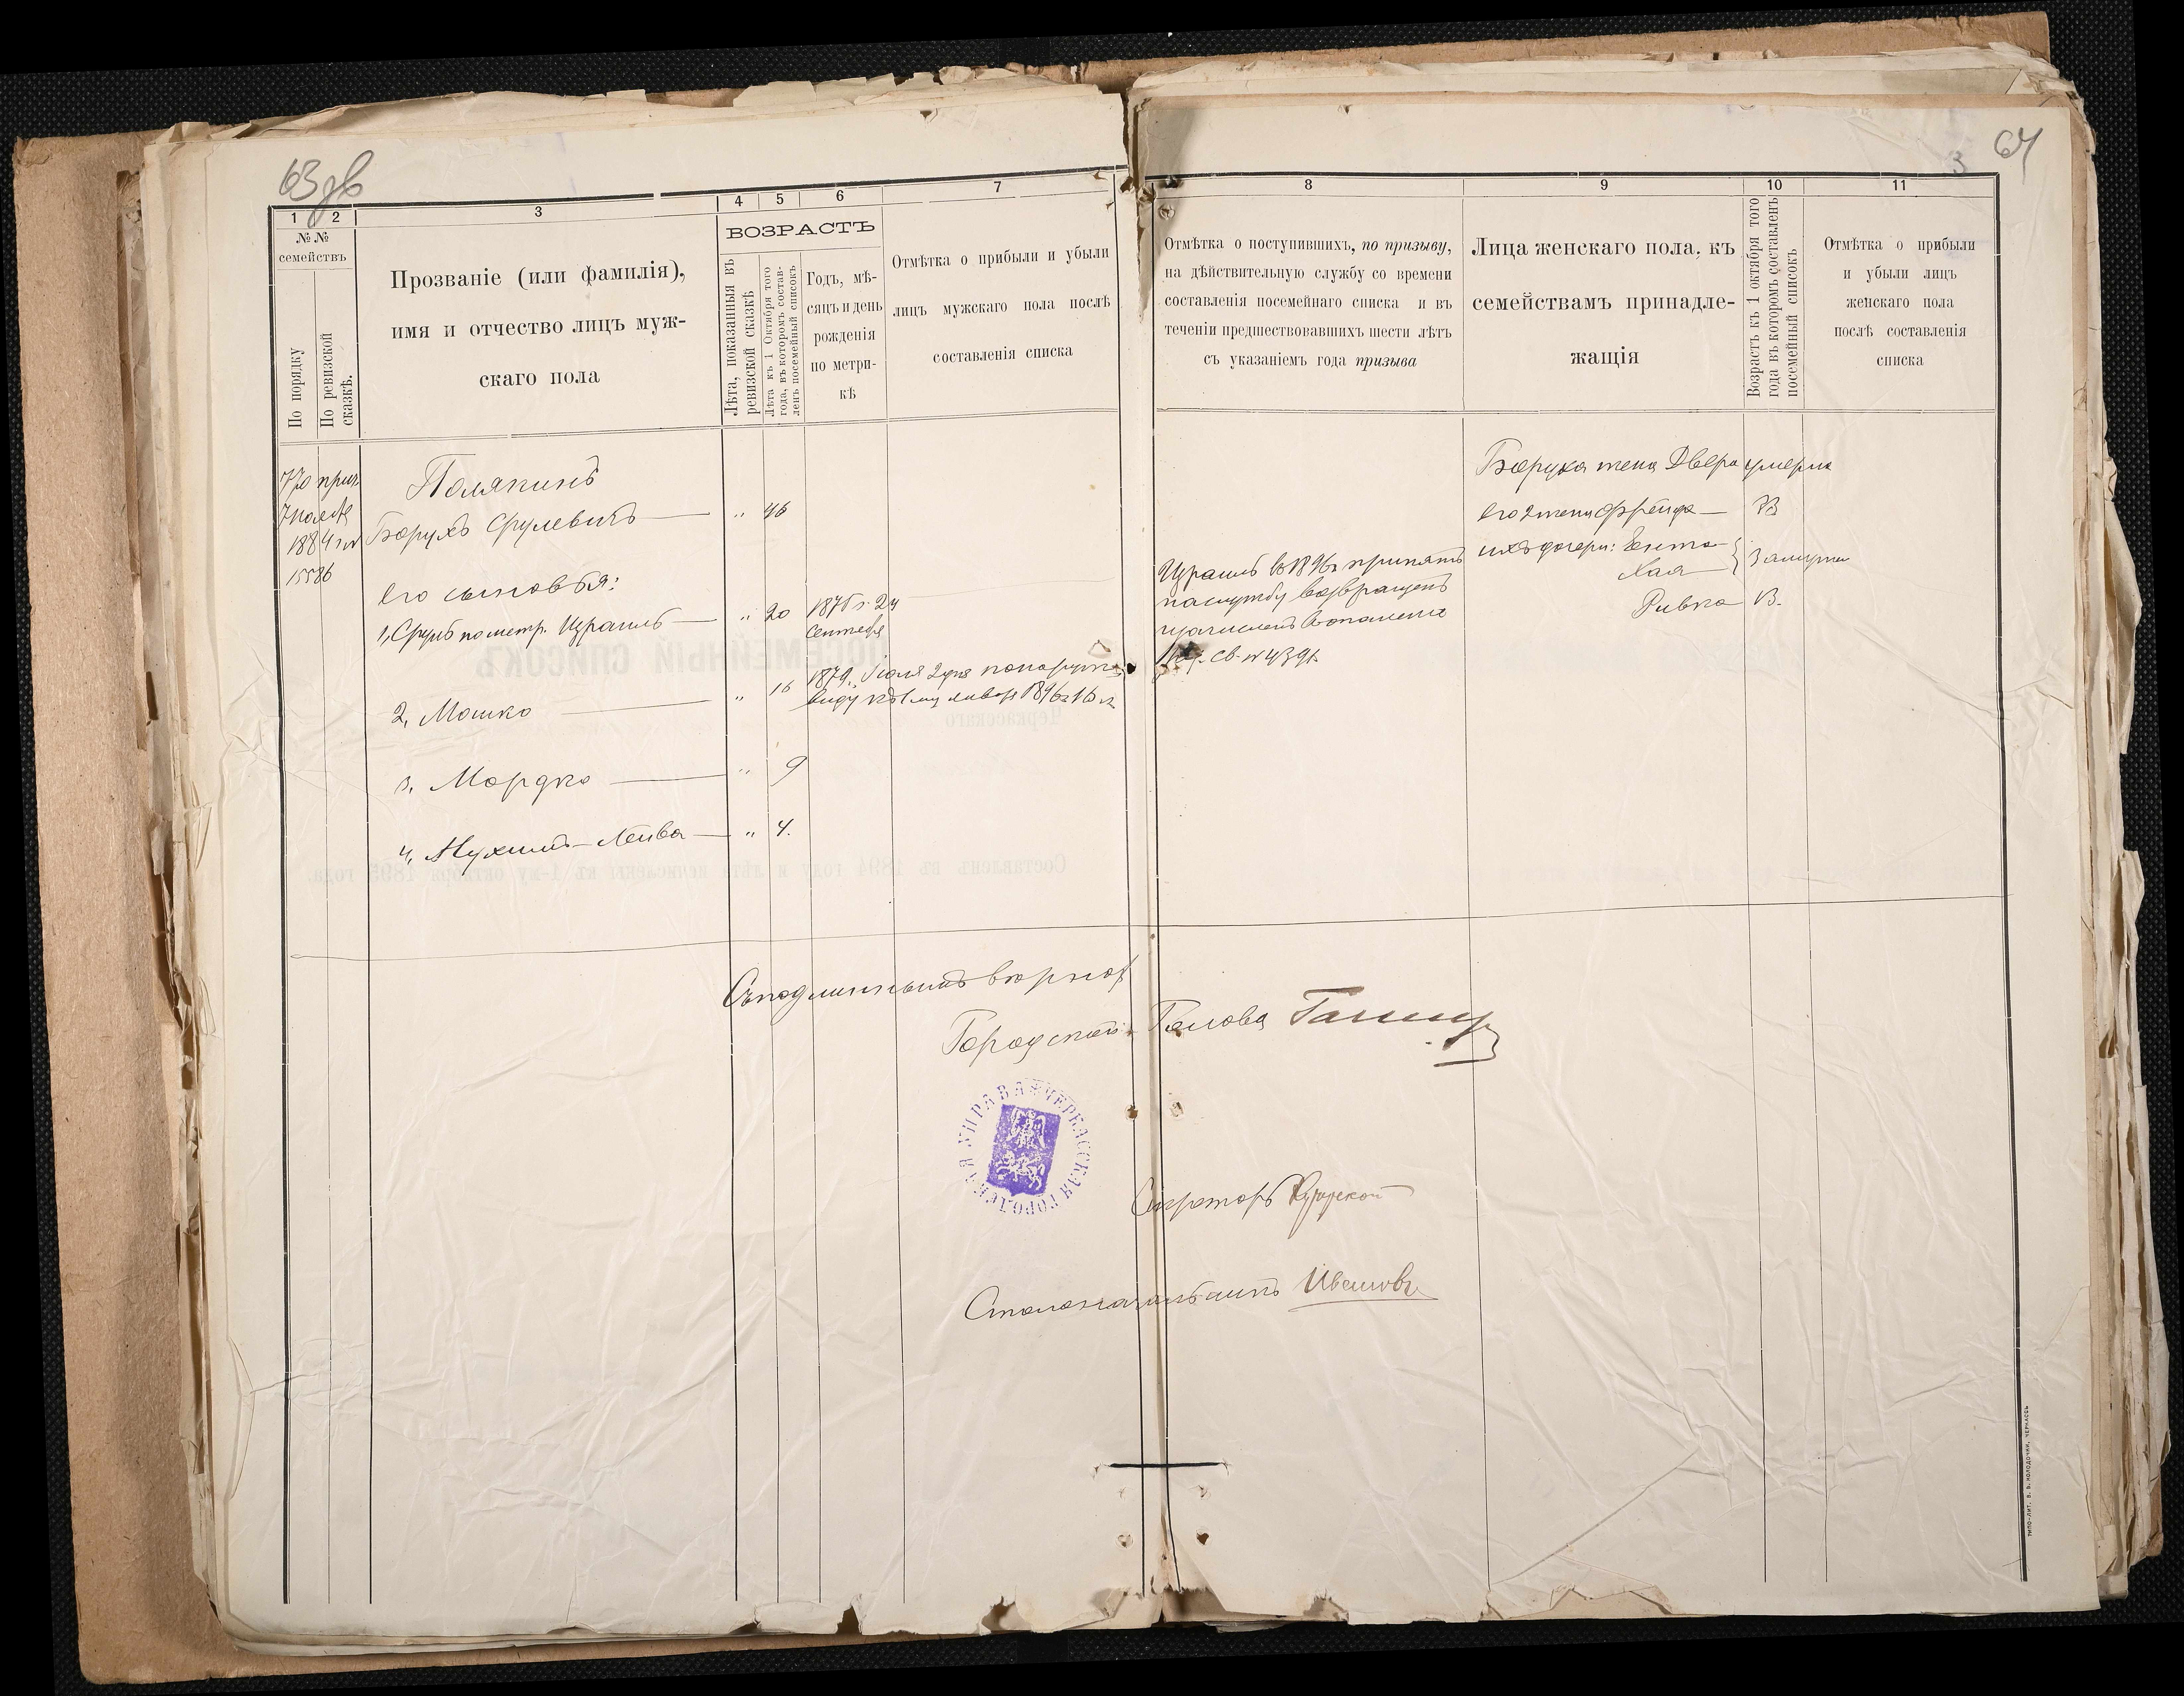 63 зв
64
3
1 2 3 4 5 6 7 8 9 10 11
№№ семействъ
По порядку
По ревизской сказкѣ.
Прозваніе (или фамилія),
имя и отчество лицъ муж-
скаго пола
ВОЗРАСТЪ
Лѣта, показанныя въ
ревизской сказкѣ
Лѣта къ 1 Октября того
года, въ которомъ состав-
ленъ посемейный списокъ
Годъ, мѣ-
сяцъ и день
рожденія
по метри-
кѣ
Отмѣтка о прибыли и убыли
лицъ мужскаго пола послѣ
составленія списка
Отмѣтка о поступившихъ, по призыву,
на дѣйствительную службу со времени
составленія посемейнаго списка и въ
теченіи предшествовавшихъ шести лѣтъ
съ указаніемъ года призыва
Лица женскаго пола, къ
семействамъ принадле-
жащія
Возрастъ къ 1 октября того
года въ которомъ составленъ
посемейный списокъ
Отмѣтка о прибыли
и убыли лицъ
женскаго пола
послѣ составленія
списка
770
1884
15586
Полякинъ
Борухъ Срулевичъ — " 46
его сыновья:
1, Сруль по метр. Израиль — " 20 1875 г. 24
сентября
2, Мошко — " 16 1879 г. Іюля 2 дня по наружно
виду къ 1 му января 1896 г. 16 л.
3, Мордко — " 9
4, Нухимъ-Лейва — " 4.
Израиль въ 1896 г. принятъ
на службу возвращенъ
и зачисленъ въ ополченіе
св. № 4391
Боруха жена Двера умерла
его 2 жена Фрейда —
ихъ дочери: Ента
Хая } замужем
Ривка — 13.
Съ подлиннымъ вѣрно:
Городской Голова
ЧЕРКАССКАЯ ГОРОДСКАЯ УПРАВА
Секретарь
Столоначальникъ Ивановъ
ПОСЕМЕЙНЫЙ СПИСОКЪ
Черкасскаго
Составленъ въ 1894 году и лѣта исчислены къ 1-му октября 1895 года.
ТИПО-ЛИТ. В. В. КОЛОДОЧКИ, ЧЕРКАССЫ